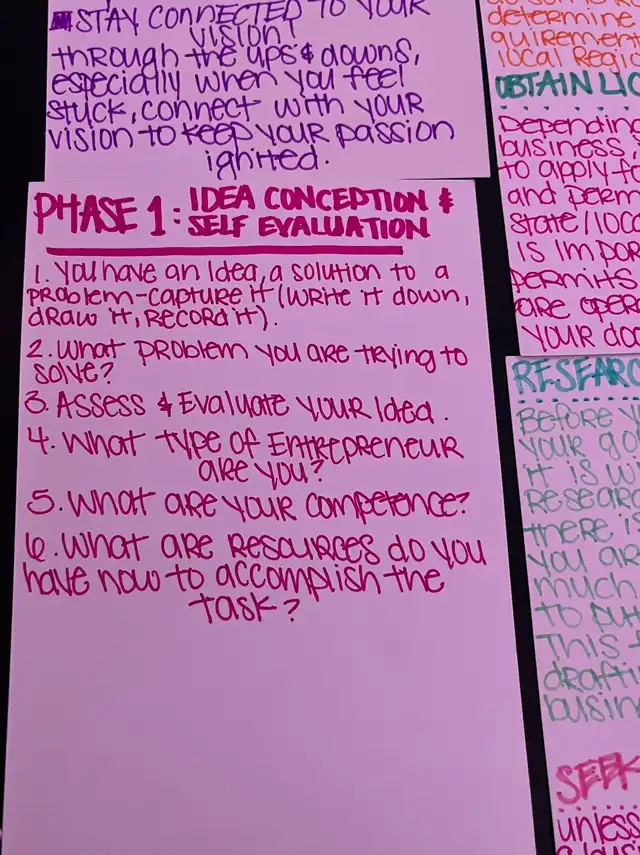 STAY CONNECTED TO YOUR
VISION!
through the ups & downs,
especially when you feel
stuck, connect with your
vision to keep your passion
ignited.
PHASE 1: IDEA CONCEPTION &
SELF EVALUATION
1. You have an Idea, a solution to a
problem-capture it (write it down,
draw it, record it).
2. What problem you are trying to
solve?
3. Assess & Evaluate your Idea.
4. What type of Entrepreneur
are you?
5. What are your competence?
6. What are resources do you
have now to accomplish the
task?
determine
quirement
local Regio
OBTAIN LIC
Depending
business,
to apply for
and perm
state/loc
is impor
permits
are oper
your do
RESEARC
Before y
your go
it is wi
Resear
there i
you ar
much
to put
This
drafti
busin
SEEK
unless